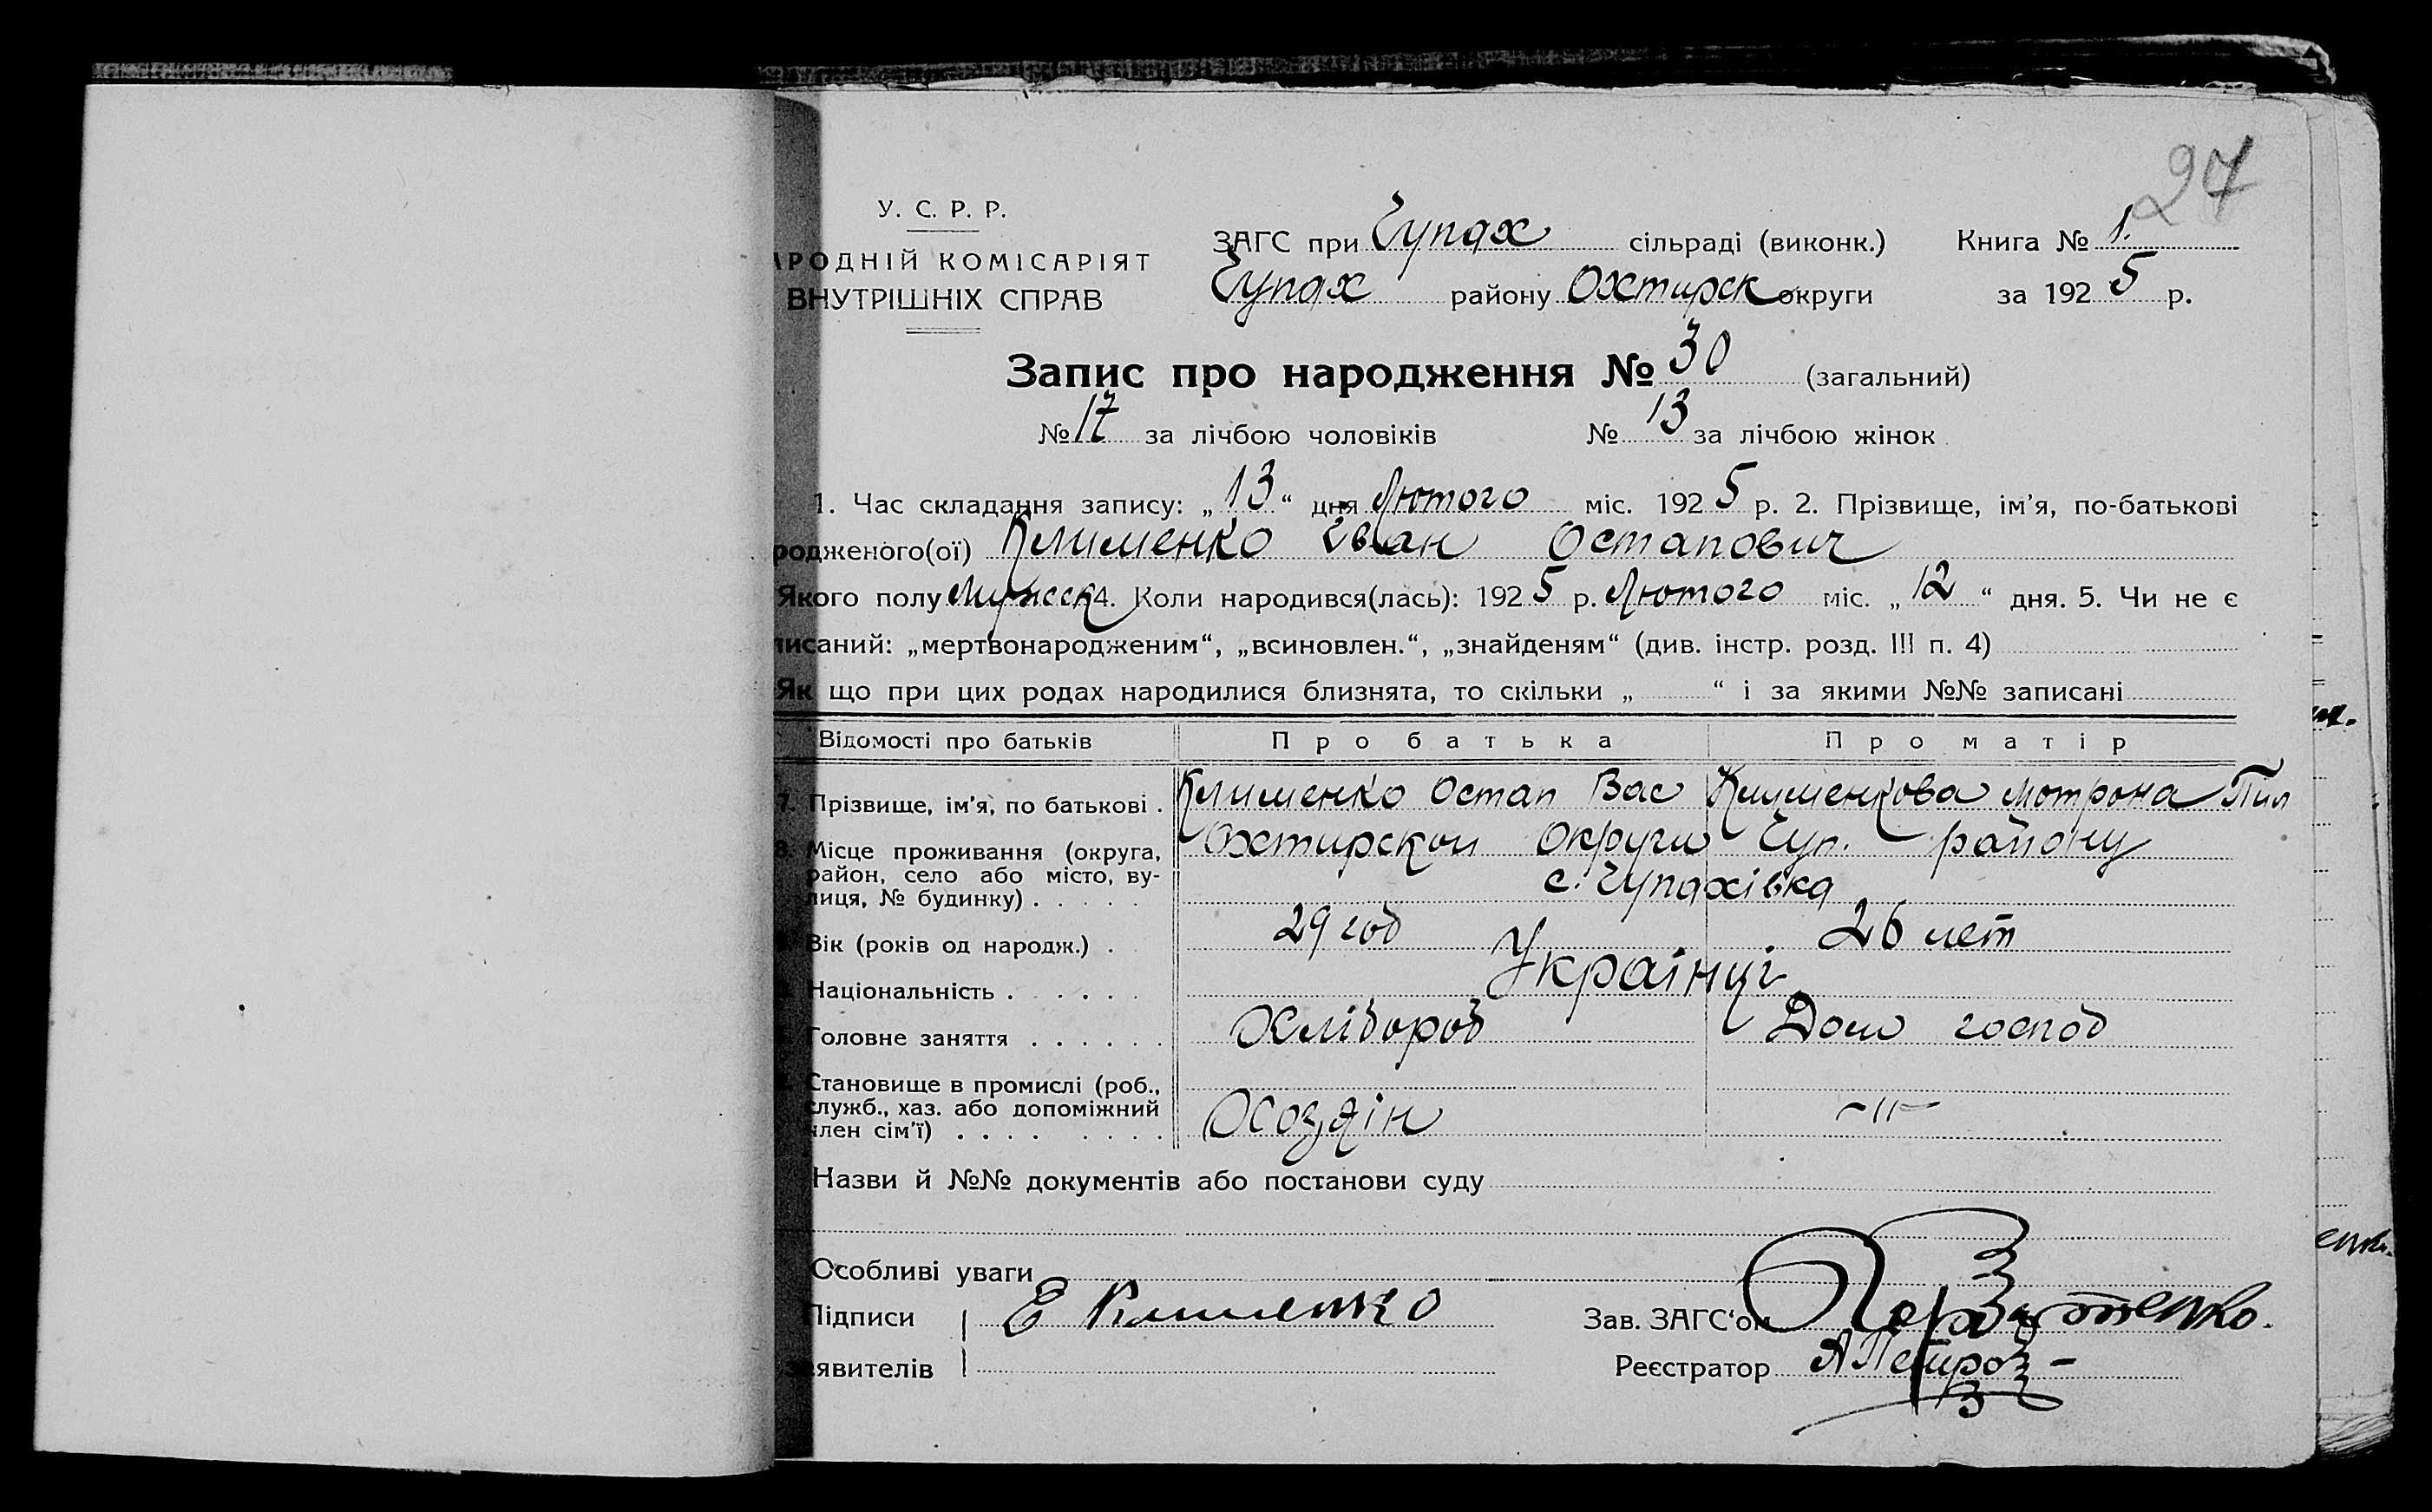 27
У. С. Р. Р.
РОДНІЙ КОМІСАРІЯТ
ВНУТРІШНІХ СПРАВ
ЗАГС при Чупах сільраді (виконк.) Книга № 1.
Чупах району Охтирск округи за 1925 р.
Запис про народження № 30 (загальний)
№ 17 за лічбою чоловіків № 13 за лічбою жінок
1. Час складання запису: „13“ дня Лютого міс. 1925 р. 2. Прізвище, ім'я, по-батькові
родженого(ої) Клименко Іван Остапович
Якого полу Мужеск 4. Коли народився(лась): 1925 р. Лютого міс. „12“ дня. 5. Чи не є
писаний: „мертвонародженим“, „всиновлен.“, „знайденям“ (див. інстр. розд. III п. 4)
Як що при цих родах народилися близнята, то скільки „ “ і за якими №№ записані
Відомості про батьків Про батька Про матір
7. Прізвище, ім'я, по батькові . Клименко Остап Вас Клименкова Мотрона Пил
8. Місце проживання (округа, Охтирскои Округи Чуп. району
район, село або місто, ву-
лиця, № будинку) . . . . . с. Чупахівка
Вік (років од народж.) . 29 год 26 лет
Національність . . . . . . Українці
Головне заняття . . . . . . Хлібороб Дом господ
Становище в промислі (роб.,
служб., хаз. або допоміжний
член сім'ї) . . . . . . . . Хозяін -"-
Назви й №№ документів або постанови суду
Особливі уваги
Підписи Е Клименко Зав. ЗАГС'ом
явителів Реєстратор АПетров